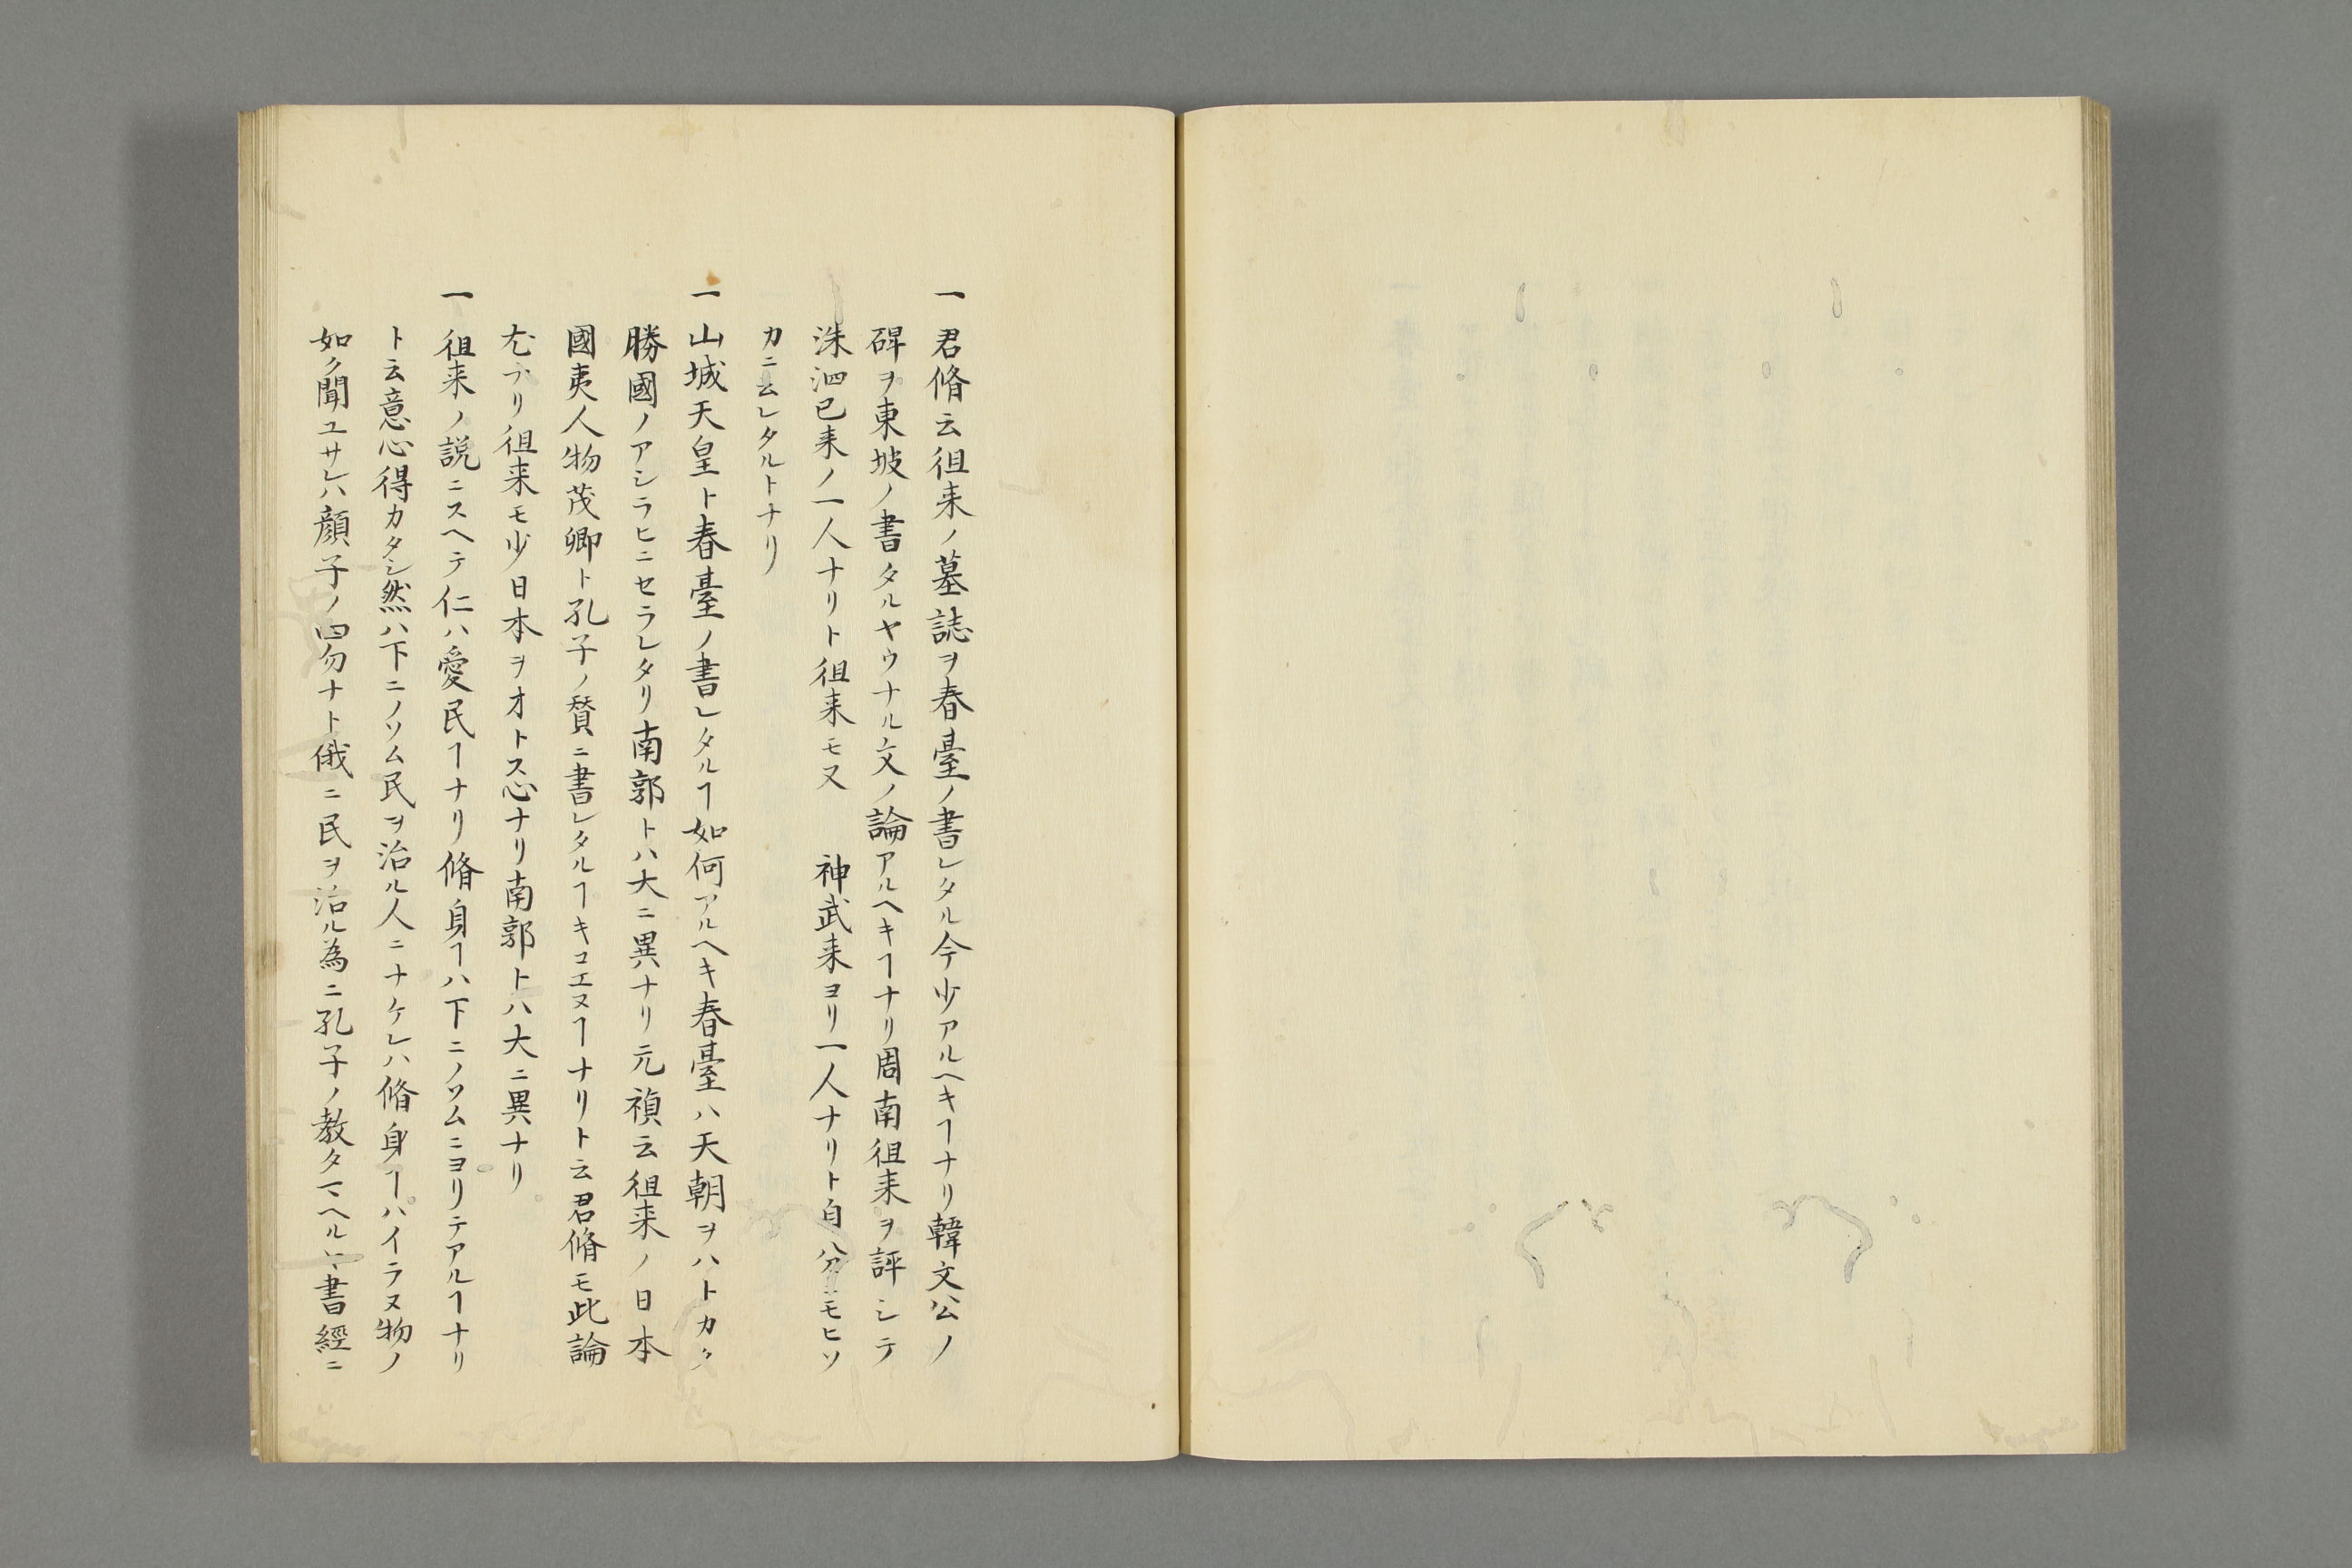 一君脩云徂来ノ墓誌ヲ春臺ノ書レタル今少アルヘキヿナリ韓文公ノ
碑ヲ東坡ノ書タルヤウナル文ノ論アルヘキヿナリ周南徂来ヲ評シテ
洙泗已来ノ一人ナリト徂来モ又　神武来ヨリ一人ナリト自分ニモヒソ
カニ云レタルトナリ
一山城天皇ト春臺ノ書レタルヿ如何アルヘキ春臺ハ天朝ヲハトカク
勝國ノアシラヒニセラレタリ南郭トハ大ニ異ナリ元禎云徂来ノ日本
國夷人物茂卿ト孔子ノ賛ニ書レタルヿキコエヌヿナリト云君脩モ此論
尤ナリ徂来モ少日本ヲオトス心ナリ南郭トハ大ニ異ナリ
一徂来ノ説ニスヘテ仁ハ愛民ヿナリ脩身ヿハ下ニノソムニヨリテアルヿナリ
ト云意心得カタシ然ハ下ニノソム民ヲ治ル人ニナケレハ脩身ヿハイラヌ物ノ
如ク聞ユサレハ顔子ノ四勿ナト俄ニ民ヲ治ル為ニ孔子ノ教タマヘルニ書經ニ